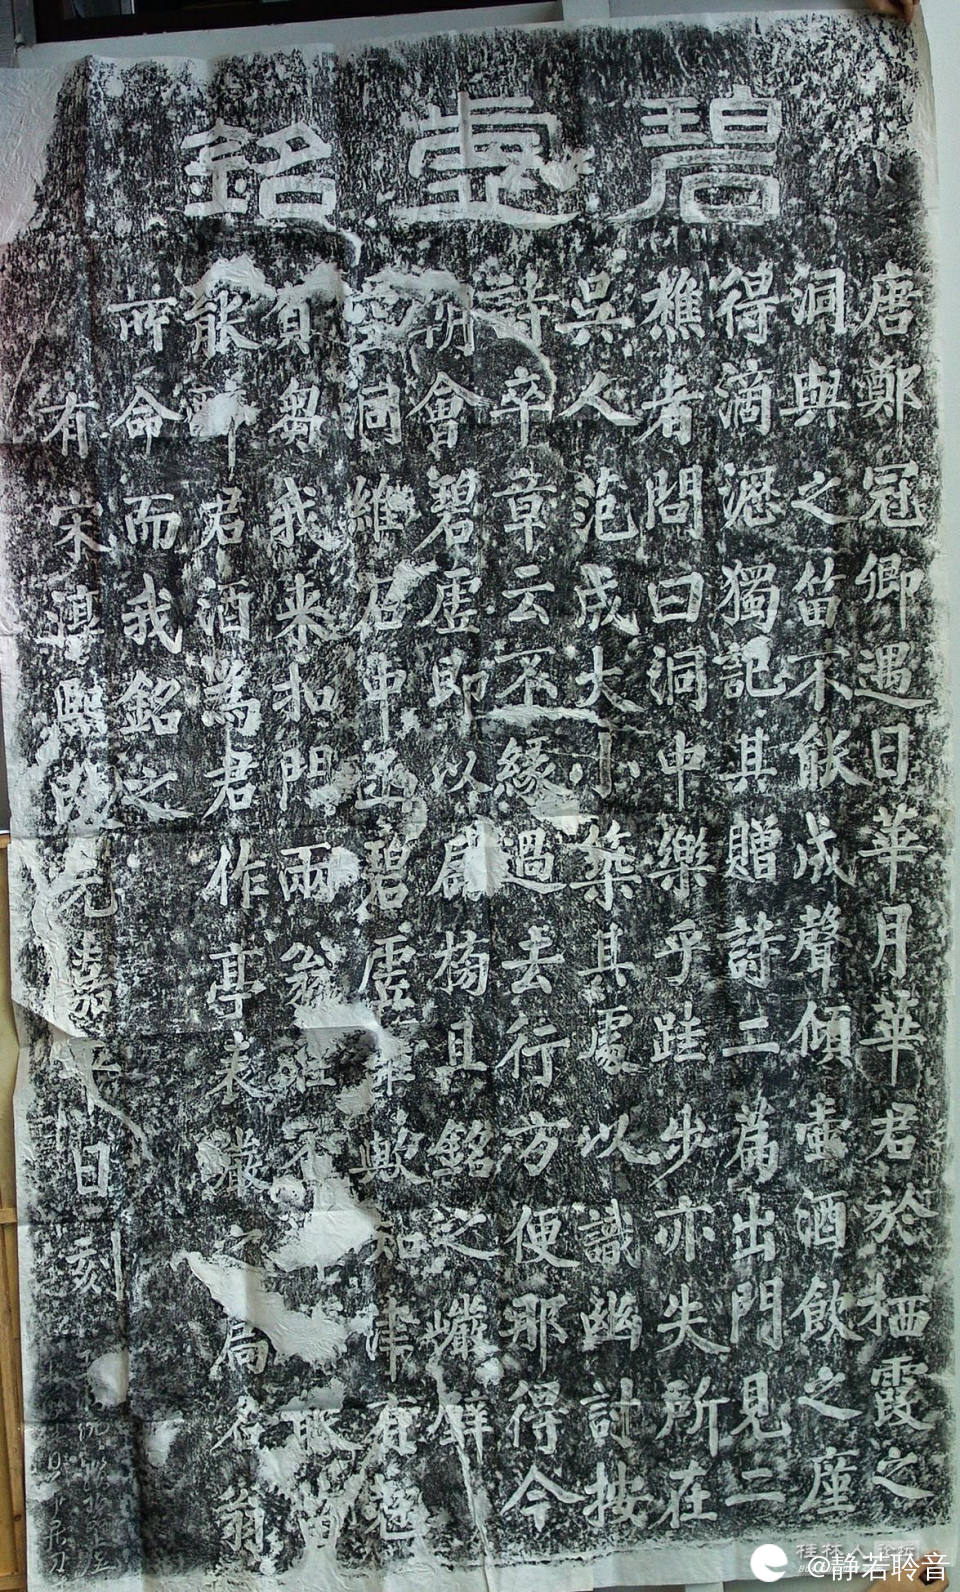 碧虛銘
唐鄭冠卿遇日華月華君於栖霞之
洞與之笛不能成聲傾壺酒飲之廑
得滴瀝獨記其贈詩二篇出門見二
樵者問曰洞中樂乎跬步亦失所在
吳人范成大小築其處以識幽討按
詩卒章云不緣過去行方便那得今
朝會碧虛即以扁榜且銘之巉
洞維石中函碧虛歟知津在
負芻我來扣門兩翁在不
能君酒為君作亭未巖局在翁
所命而我銘之
有宋淳熙改元嘉平日刻
桂林人论坛
@静若聆音